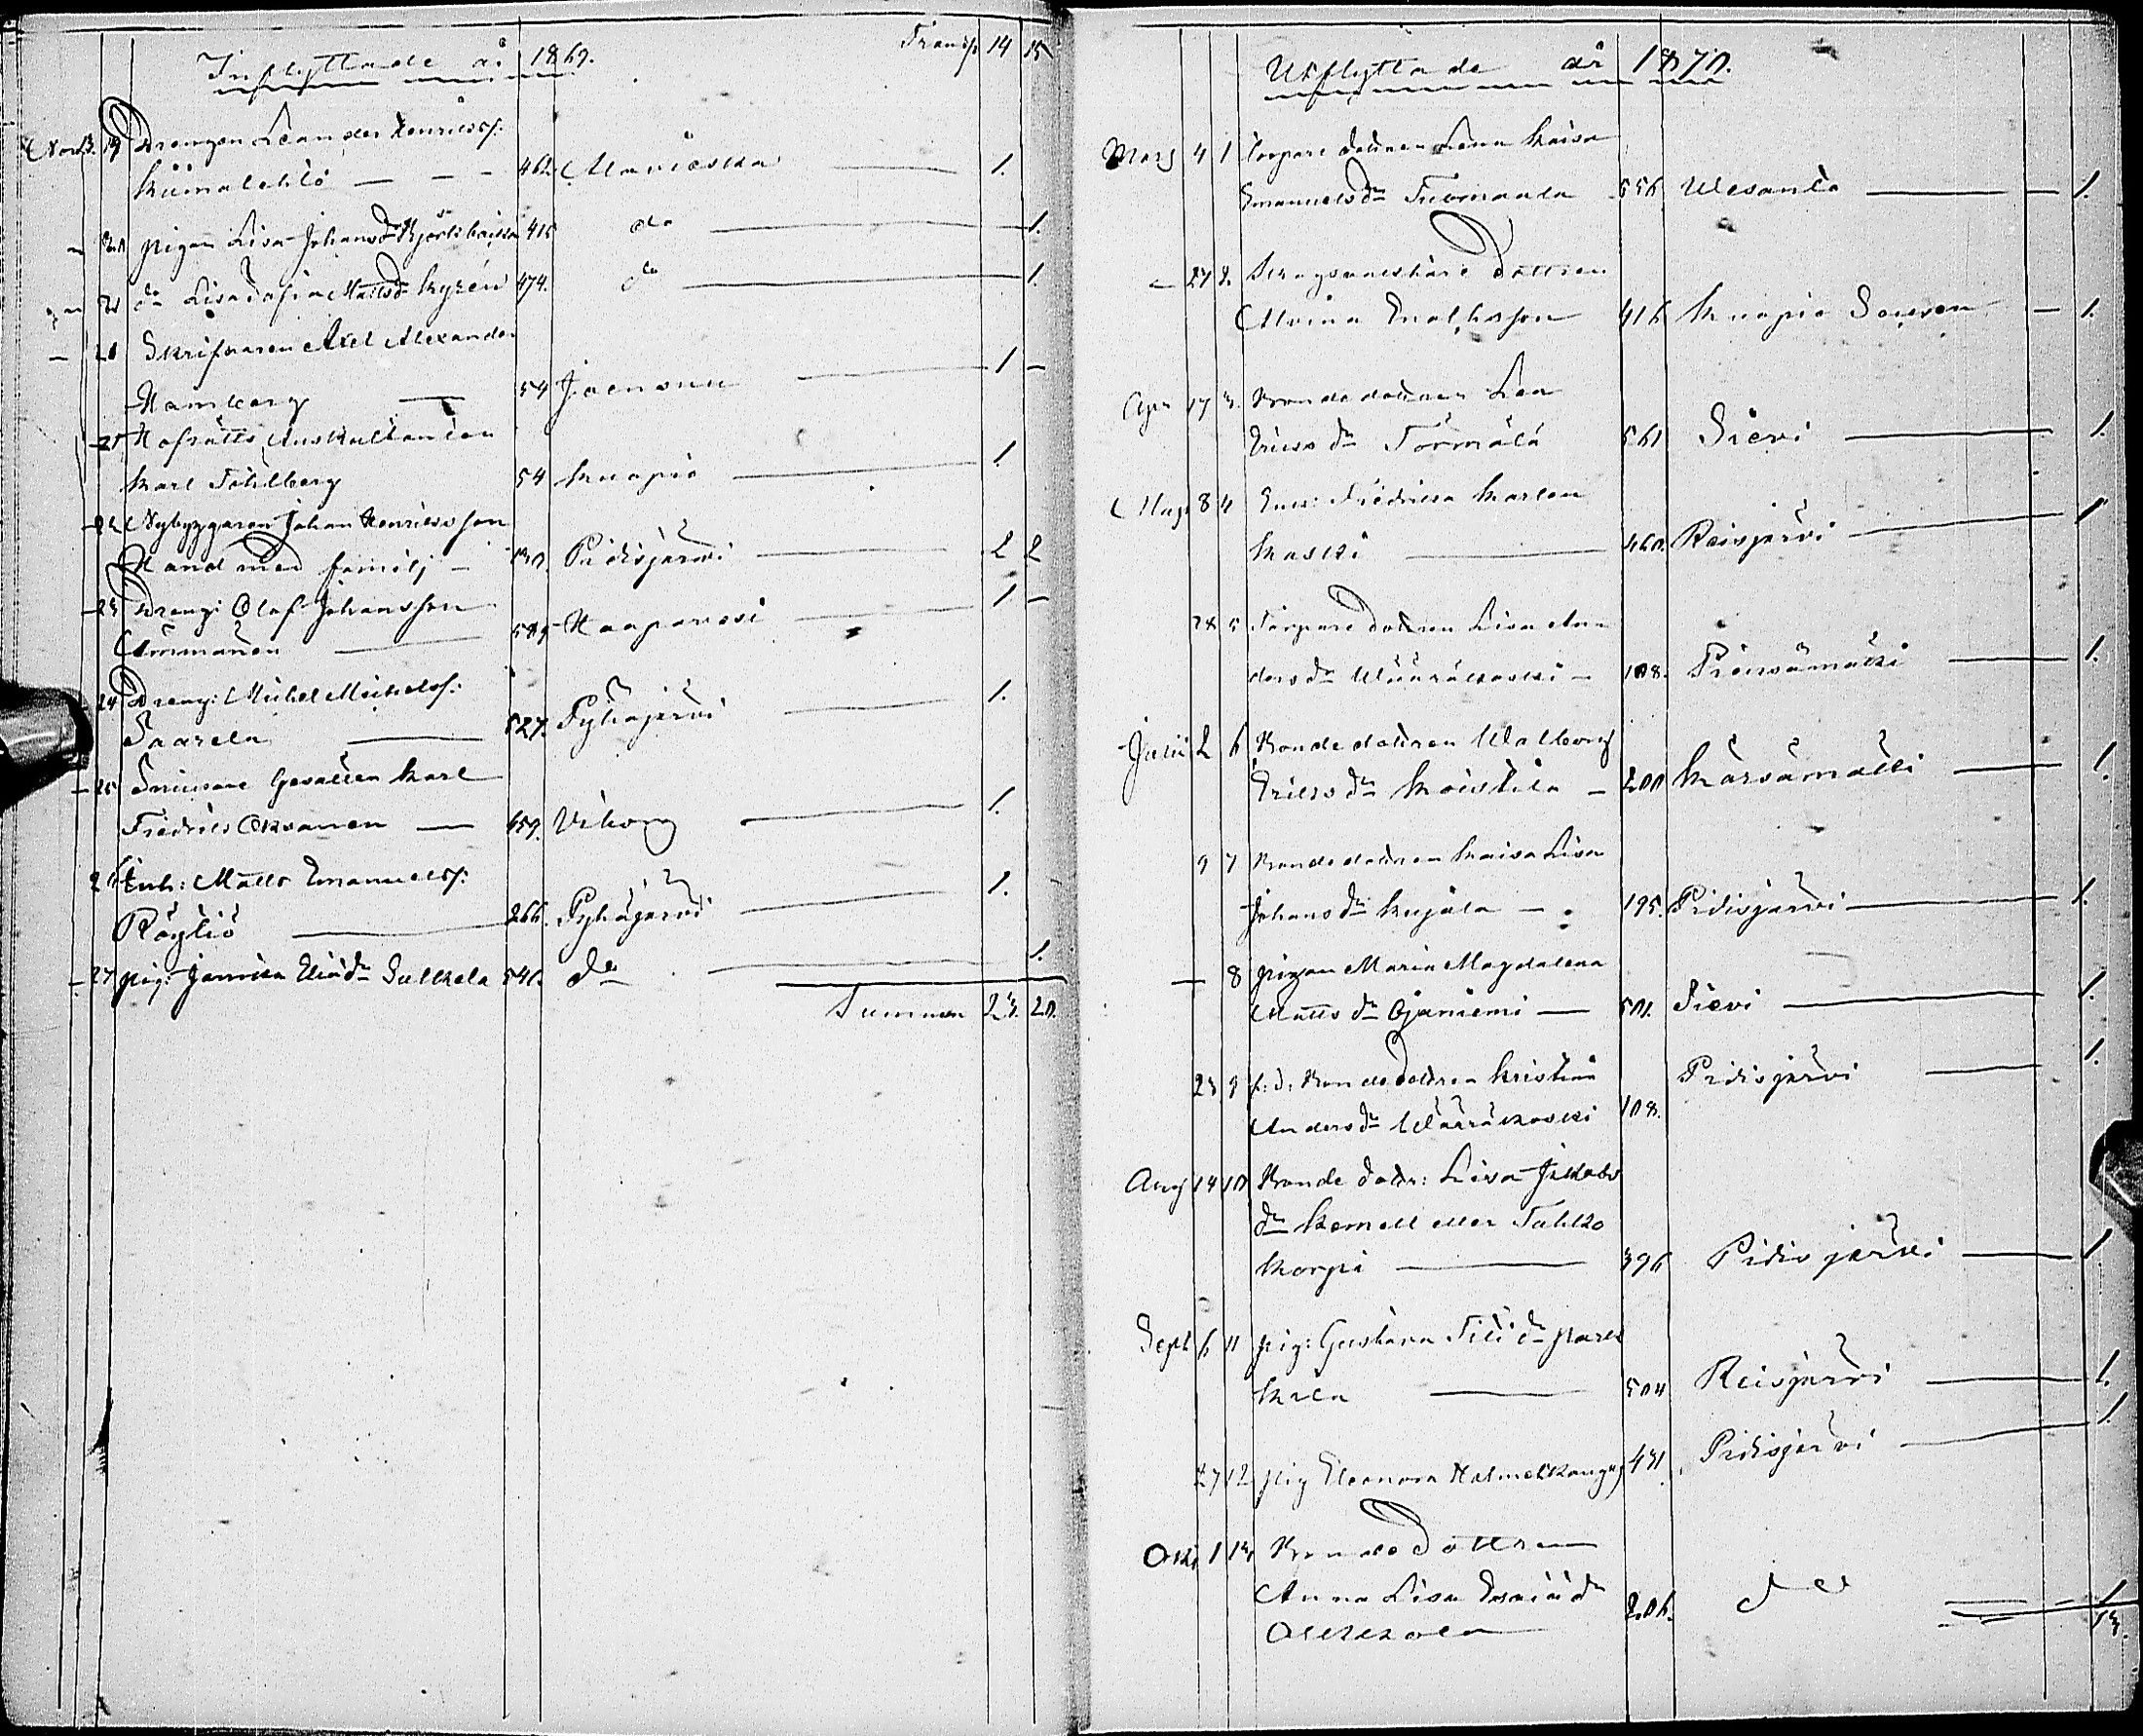 Inflyttade år 1869. Transp 14 15
Nov. 3. 19 Drengen Leander Henricss:
Kiimalehto — — — 462. 1.
20 pigan Lisa Johansdr 415 do — 1.
21 do Lisa Sofia Mattsdr Kyrén 474. do — 1.
21 Skrifvaren Axel Alexander
Hamberg — 54 Joensuu — 1 —
21 Hofrätts Auskultanten
Karl Fahlberg 54 Kuopio — 1.
22 Nybyggaren Johan Henricsson
Hand med familj — Pidisjärvi — 2 2
23 Dreng: Olof Johansson
589 Haapavesi — 1 —
24 Dreng: Michel Michelss:
Saarela — 527. Pyhäjärvi — 1.
25 Snickare Gesällen Karl
Fredrik Oksanen — 459. Viborg — 1.
26 Inh: Matts Emanuelss:
Röyliö — 266. Pyhäjärvi — 1.
27 pig: Jannica Eliædr Sulkala 541. do — 1.
Summa 23. 20.
Utflyttade år 1870.
Mars 4 1 Torpare dottren Lena Kaisa
Emanuelsdr Tuomaala 556 Wesanto — 1.
— 27 2. dottren
Alvina Enalhsson 416 Kuopio Socken — 1.
Apr 17 3. Bonde dottren Lea
Ericsdr Törmälä 561 Sievi — 1.
Maji 8 4 Enk: Fredrica Karlon
Kaski — 460. Reisjärvi — 1
28 5 Torpare dottren Lisa An-
dersdr Wääräkoski — 108. Piipsämäki — 1.
Julii 2 6 Bonde dottren Walborg
Ericsdr Koistila — 200 Kärsämäki — 1.
9 7 Bonde dottren Kaisa Lisa
Johansdr Kujala — 195. Pidisjärvi — 1.
— 8 pigan Maria Magdalena
Mattsdr Ojaniemi — 501. Sievi — 1.
23 9 f: d: Bonde dottren Kristina
Andersdr Wääräkoski 108. Pidisjärvi — 1.
Aug 14 10 Bonde dottr: Lisa Jakobs
dr Kemell eller Tahko
Korpi — 396 Pidisjärvi — 1
Sept 6 11 pig: Gustava dr Park
kila — 504 Reisjärvi — 1.
27 12 pig Eleonora Halmetkangas 431. Pidisjärvi — 1
Okt 1 13 Bonde Dottren
Anna Lisa Esaiædr
206. do — 1
13.